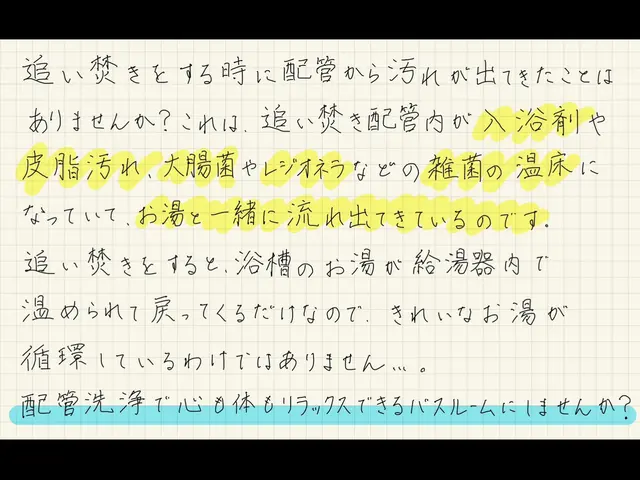 追い焚きをする時に配管から汚れが出てきたことは
ありませんか?これは、追い焚き配管内が入浴剤や
皮脂汚れ、大腸菌やレジオネラなどの雑菌の温床に
なっていて、お湯と一緒に流れ出てきているのです。
追い焚きをすると、浴槽のお湯が給湯器内で
温められて戻ってくるだけなので、きれいなお湯が
循環しているわけではありません…。
配管洗浄で心も体もリラックスできるバスルームにしませんか?